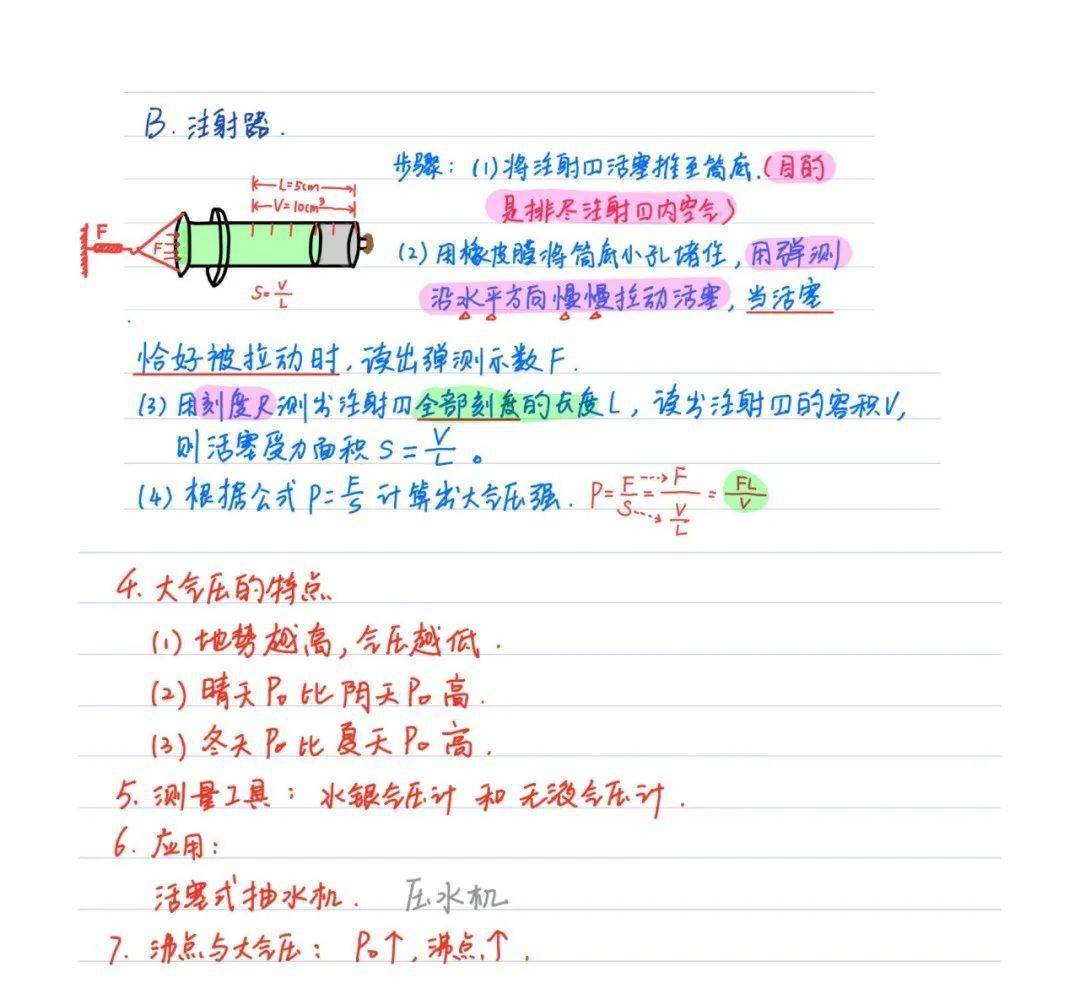 B. 注射器.
步骤：(1)将注射口活塞推至筒底.(目的
是排尽注射口内空气)
L=5cm
V=10cm³
F
F
S=V/L
(2)用橡皮膜将筒底小孔堵住，用弹测
沿水平方向慢慢拉动活塞，当活塞
恰好被拉动时，读出弹测示数F.
(3)用刻度尺测出注射口全部刻度的长度L，读出注射口的容积V，
则活塞受力面积S=V/L。
(4)根据公式P=F/S计算出大气压强. P=F/S=F/(V/L)=FL/V
4. 大气压的特点
(1)地势越高，气压越低.
(2)晴天P₀比阴天P₀高.
(3)冬天P₀比夏天P₀高.
5. 测量工具：水银气压计和无液气压计.
6. 应用：
活塞式抽水机. 压水机
7. 沸点与大气压：P₀↑，沸点↑.